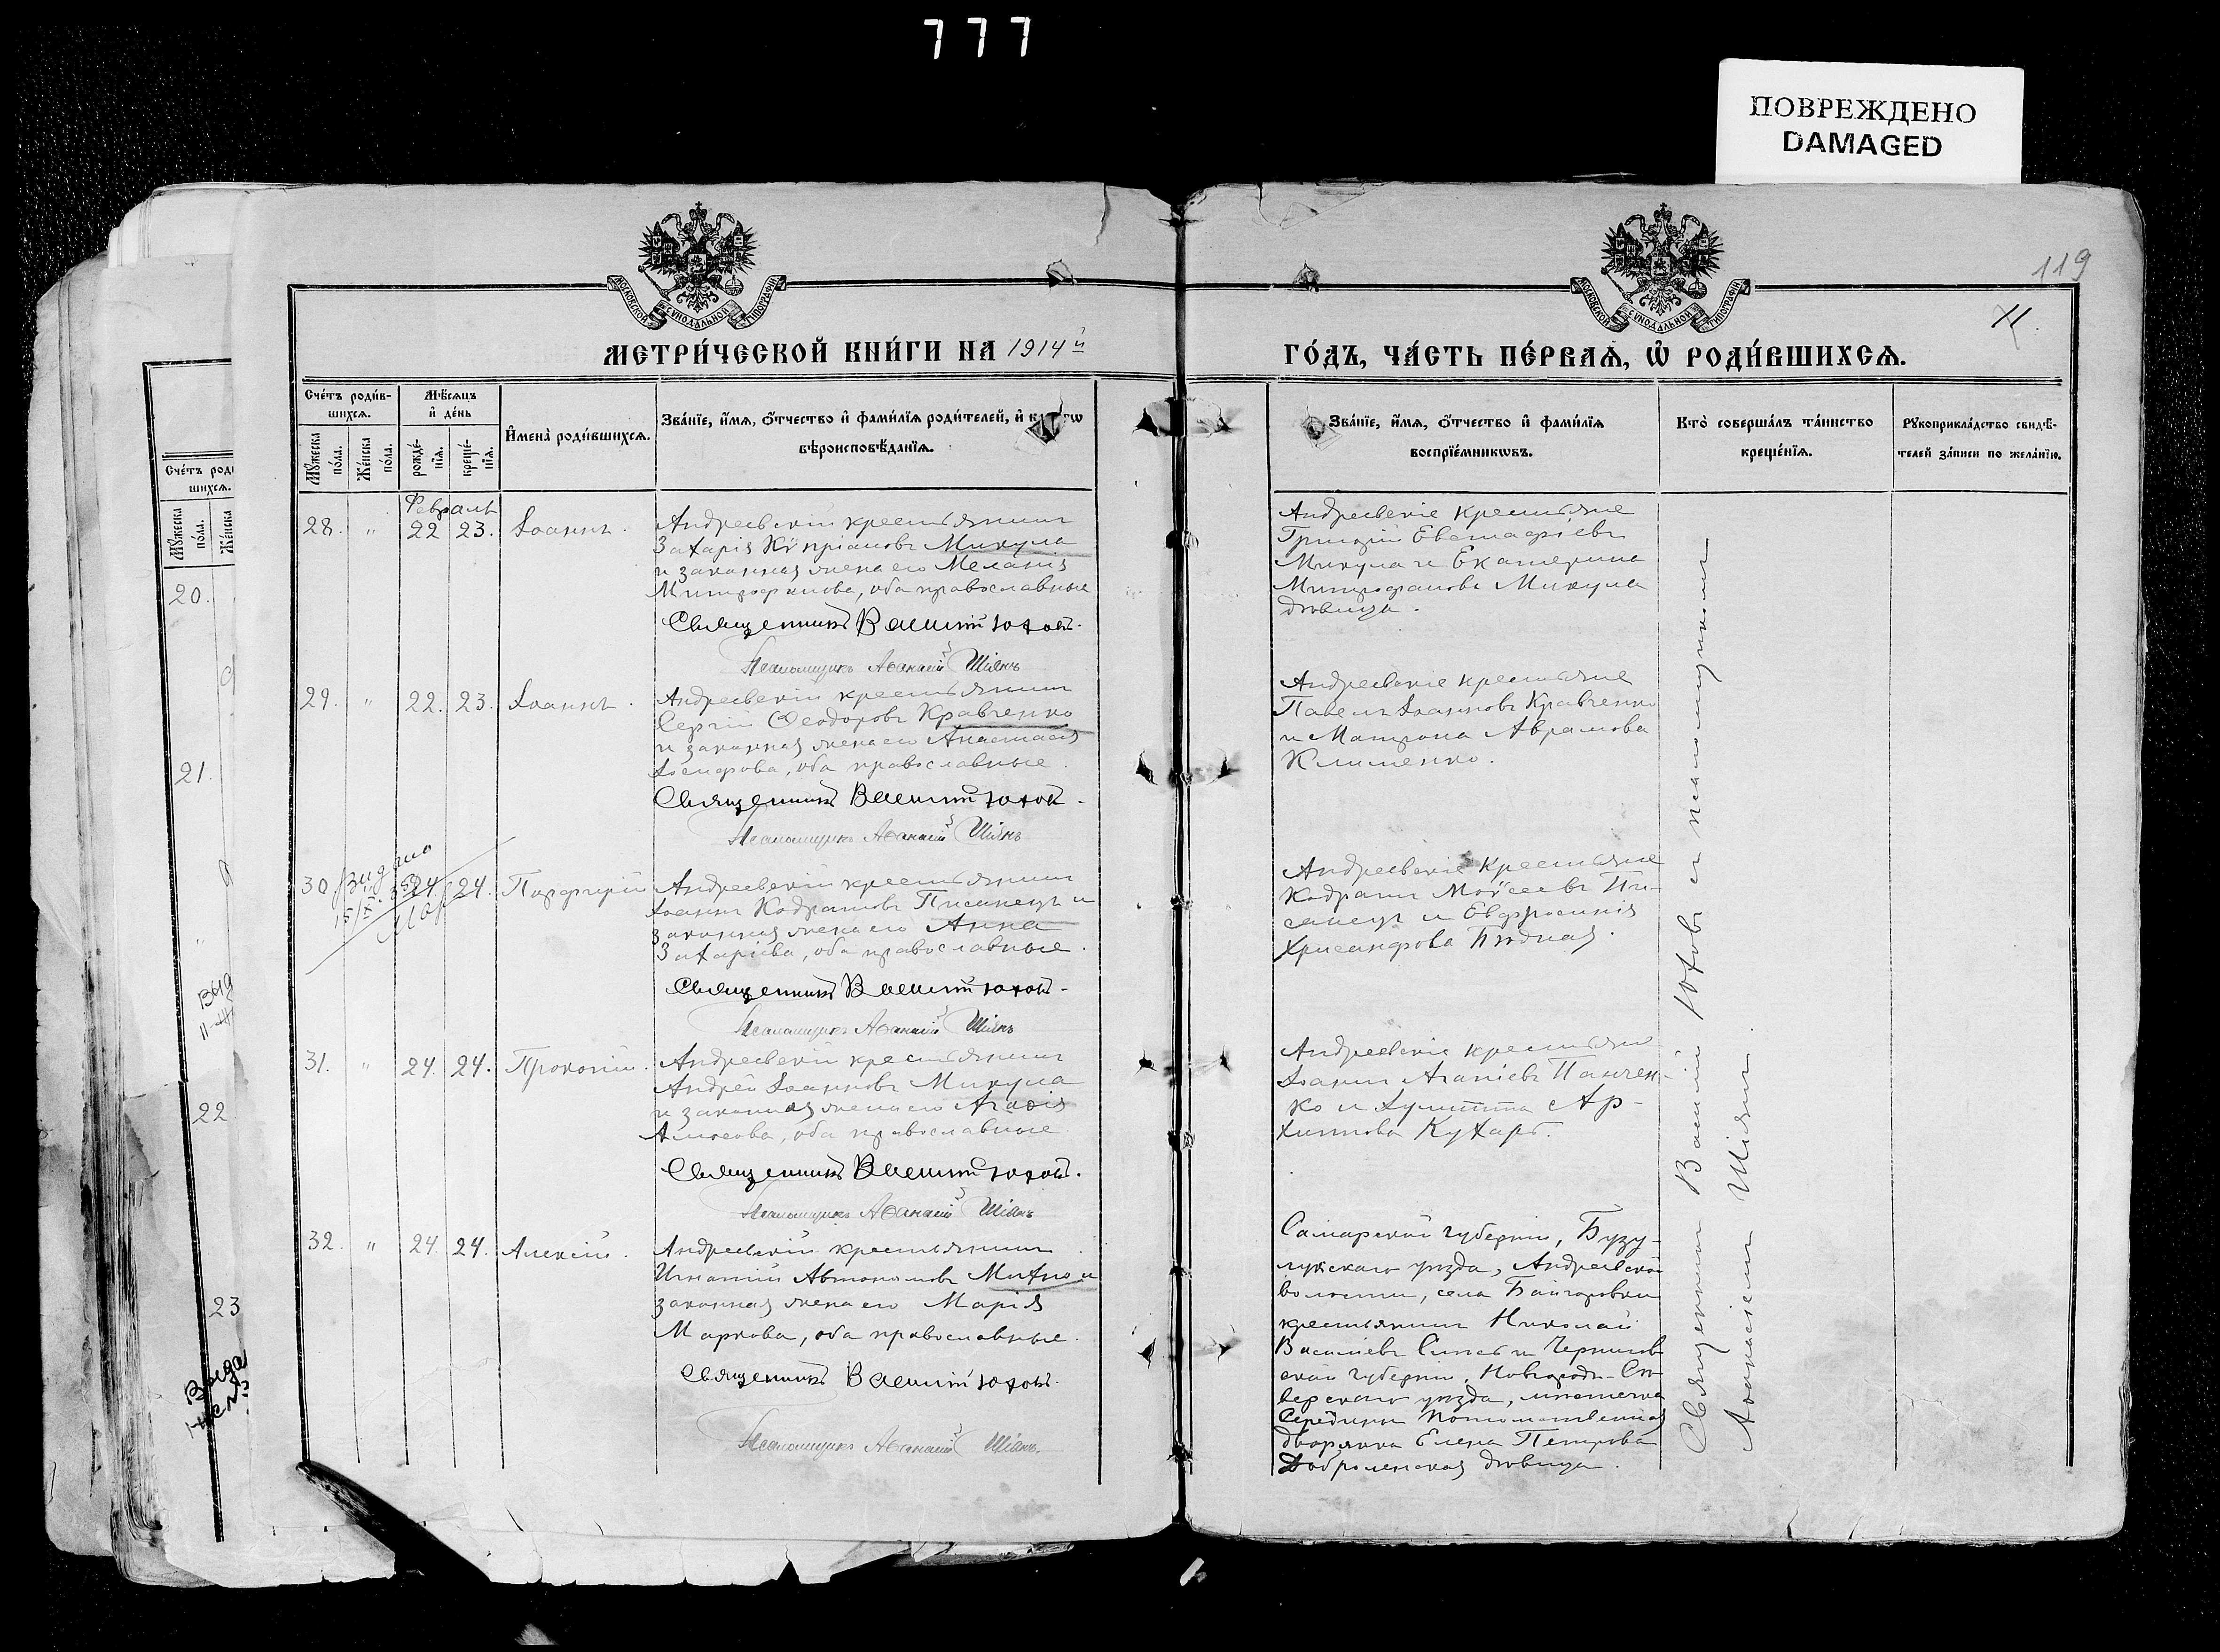 777
ПОВРЕЖДЕНО
DAMAGED
119
МОСКОВСКОЙ СѴНОДАЛЬНОЙ ТИПОГРАФІИ
МОСКОВСКОЙ СѴНОДАЛЬНОЙ ТИПОГРАФІИ
МЕТРИ́ЧЕСКОЙ КНИ́ГИ НА 1914й
ГО́ДЪ, ЧА́СТЬ ПЕ́РВАѦ, Ѡ҆ РОДИ́ВШИХСѦ.
Сче́тъ роди́в-
шихсѧ.
Мѣ́сѧцъ
и҆ де́нь
Мꙋ́жеска по́ла.
Же́нска по́ла.
рожде́-нїѧ.
креще́-нїѧ.
И҆мена̀ роди́вшихсѧ.
Зва́нїе, и҆́мѧ, ѻ҆́тчество и҆ фами́лїѧ роди́телей, и҆
вѣроисповѣ́данїѧ.
Зва́нїе, и҆́мѧ, ѻ҆́тчество и҆ фами́лїѧ
воспрїе́мникѡвъ.
Кто̀ соверша́лъ та́инство
креще́нїѧ.
Рꙋкоприкла́дство свидѣ́-
телей за́писи по жела́нїю.
Сче́тъ роди
шихсѧ.
Мꙋ́жеска по́ла.
Же́нска
20.
21.
22
23
Февраль
28. " 22 23. Іоаннъ.
Андреевскій крестьянинъ
Захарія Кѵпріановъ Микула
и законная жена его Меланія
Митрофанова, оба православные
Священникъ Василій Юховъ.
Псаломщикъ Аѳанасій Шіянъ
Андреевскіе крестьяне
Григорій Евстафіевъ
Микула и Екатерина
Митрофанова Микула
дѣвица.
29. " 22. 23. Іоаннъ.
Андреевскій крестьянинъ
Сергій Ѳеодоровъ Кравченко
и законная жена его Анастасія
Іосифова, оба православные.
Священникъ Василій Юховъ.
Псаломщикъ Аѳанасій Шіянъ
Андреевскіе крестьяне
Павелъ Іоанновъ Кравченко
и Матрона Аврамова
Клименко.
30. " 24. 24. Порфирій
Андреевскій крестьянинъ
Іоаннъ Кодратовъ Писанецъ и
законная жена его Анна
Захаріева, оба православные.
Священникъ Василій Юховъ.
Псаломщикъ Аѳанасій Шіянъ
Андреевскіе крестьяне
Кодратъ Моѵсеевъ Пи-
санецъ и Евфросинія
Хрисанфова Бѣдная.
31. " 24. 24. Прокопій.
Андреевскій крестьянинъ
Андрей Іоанновъ Микула
и законная жена его Агаѳія
Амосова, оба православные
Священникъ Василій Юховъ.
Псаломщикъ Аѳанасій Шіянъ
Андреевскіе крестьяне
Іоаннъ Агапіевъ Панчен-
ко и Іулитта Ар-
хиппова Кухарь.
32. " 24. 24. Алексій.
Андреевскій крестьянинъ
Игнатій Автономовъ Михно и
законная жена его Марія
Маркова, оба православные.
Священникъ Василій Юховъ.
Псаломщикъ Аѳанасій Шіянъ.
Самарской губерніи, Бузу-
лукскаго уѣзда, Андреевской
волости, села
крестьянинъ Николай
Василіевъ и Чернигов
ской губерніи, Новгородъ-Сѣ
верскаго уѣзда, мѣстечка
Середины потомственная
дворянка Елена Петрова
дѣвица.
Священникъ Василій Юховъ съ псаломщикомъ
Аѳанасіемъ Шіяномъ.